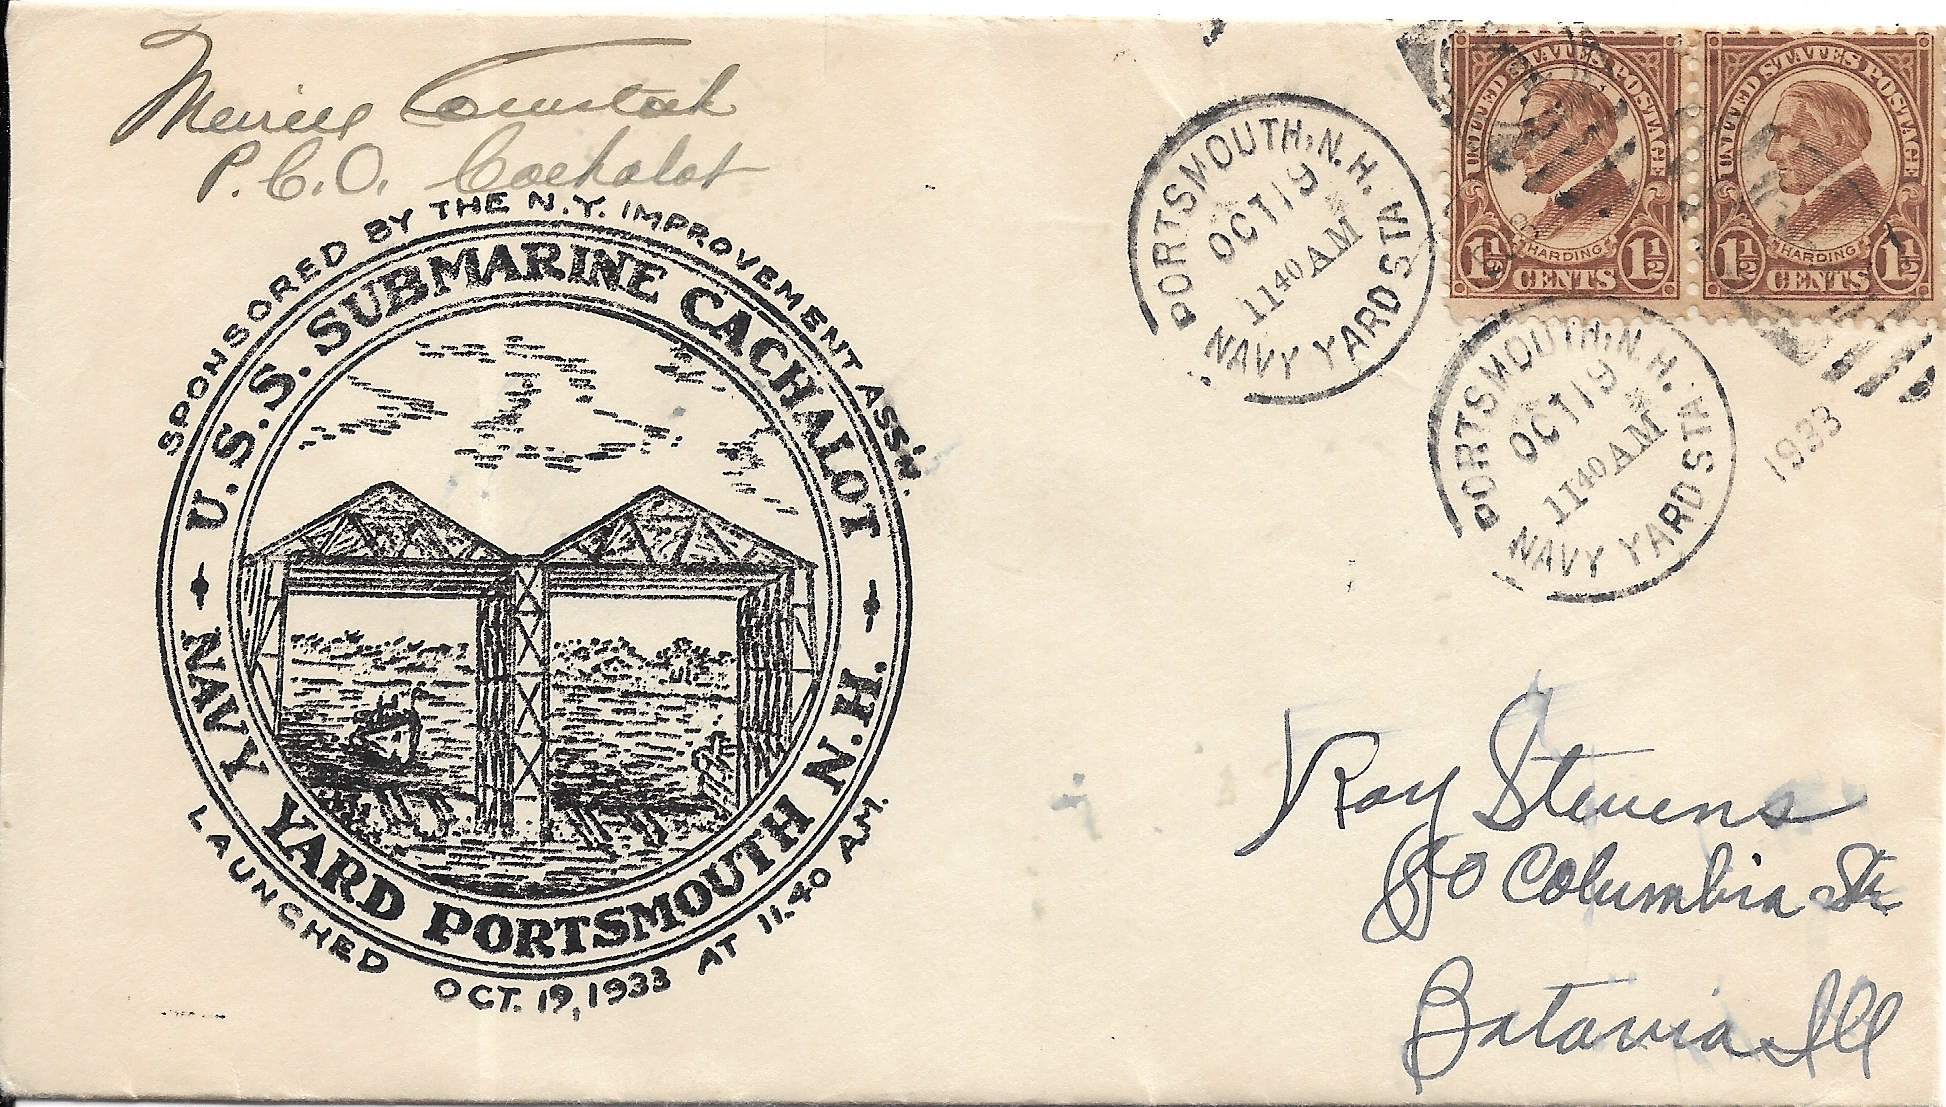 Merrill Comstock
P.C.O. Cachalot
SPONSORED BY THE N.Y. IMPROVEMENT ASS'N.
U.S.S. SUBMARINE CACHALOT
NAVY YARD PORTSMOUTH N.H.
LAUNCHED OCT. 19, 1933 AT 11.40 A.M.
PORTSMOUTH, N.H.
OCT 19
11 40 AM
NAVY YARD STA
PORTSMOUTH, N.H.
OCT 19
11 40 AM
NAVY YARD STA
1933
UNITED STATES POSTAGE
HARDING
1½ CENTS 1½
UNITED STATES POSTAGE
HARDING
1½ CENTS 1½
Ray Stevens
80 Columbia St
Batavia Ill